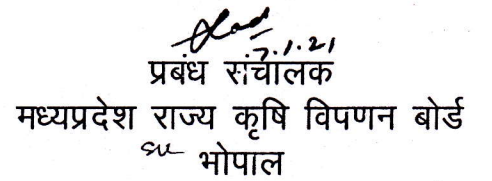 7.1.21
प्रबंध संचालक
मध्यप्रदेश राज्य कृषि विपणन बोर्ड
भोपाल